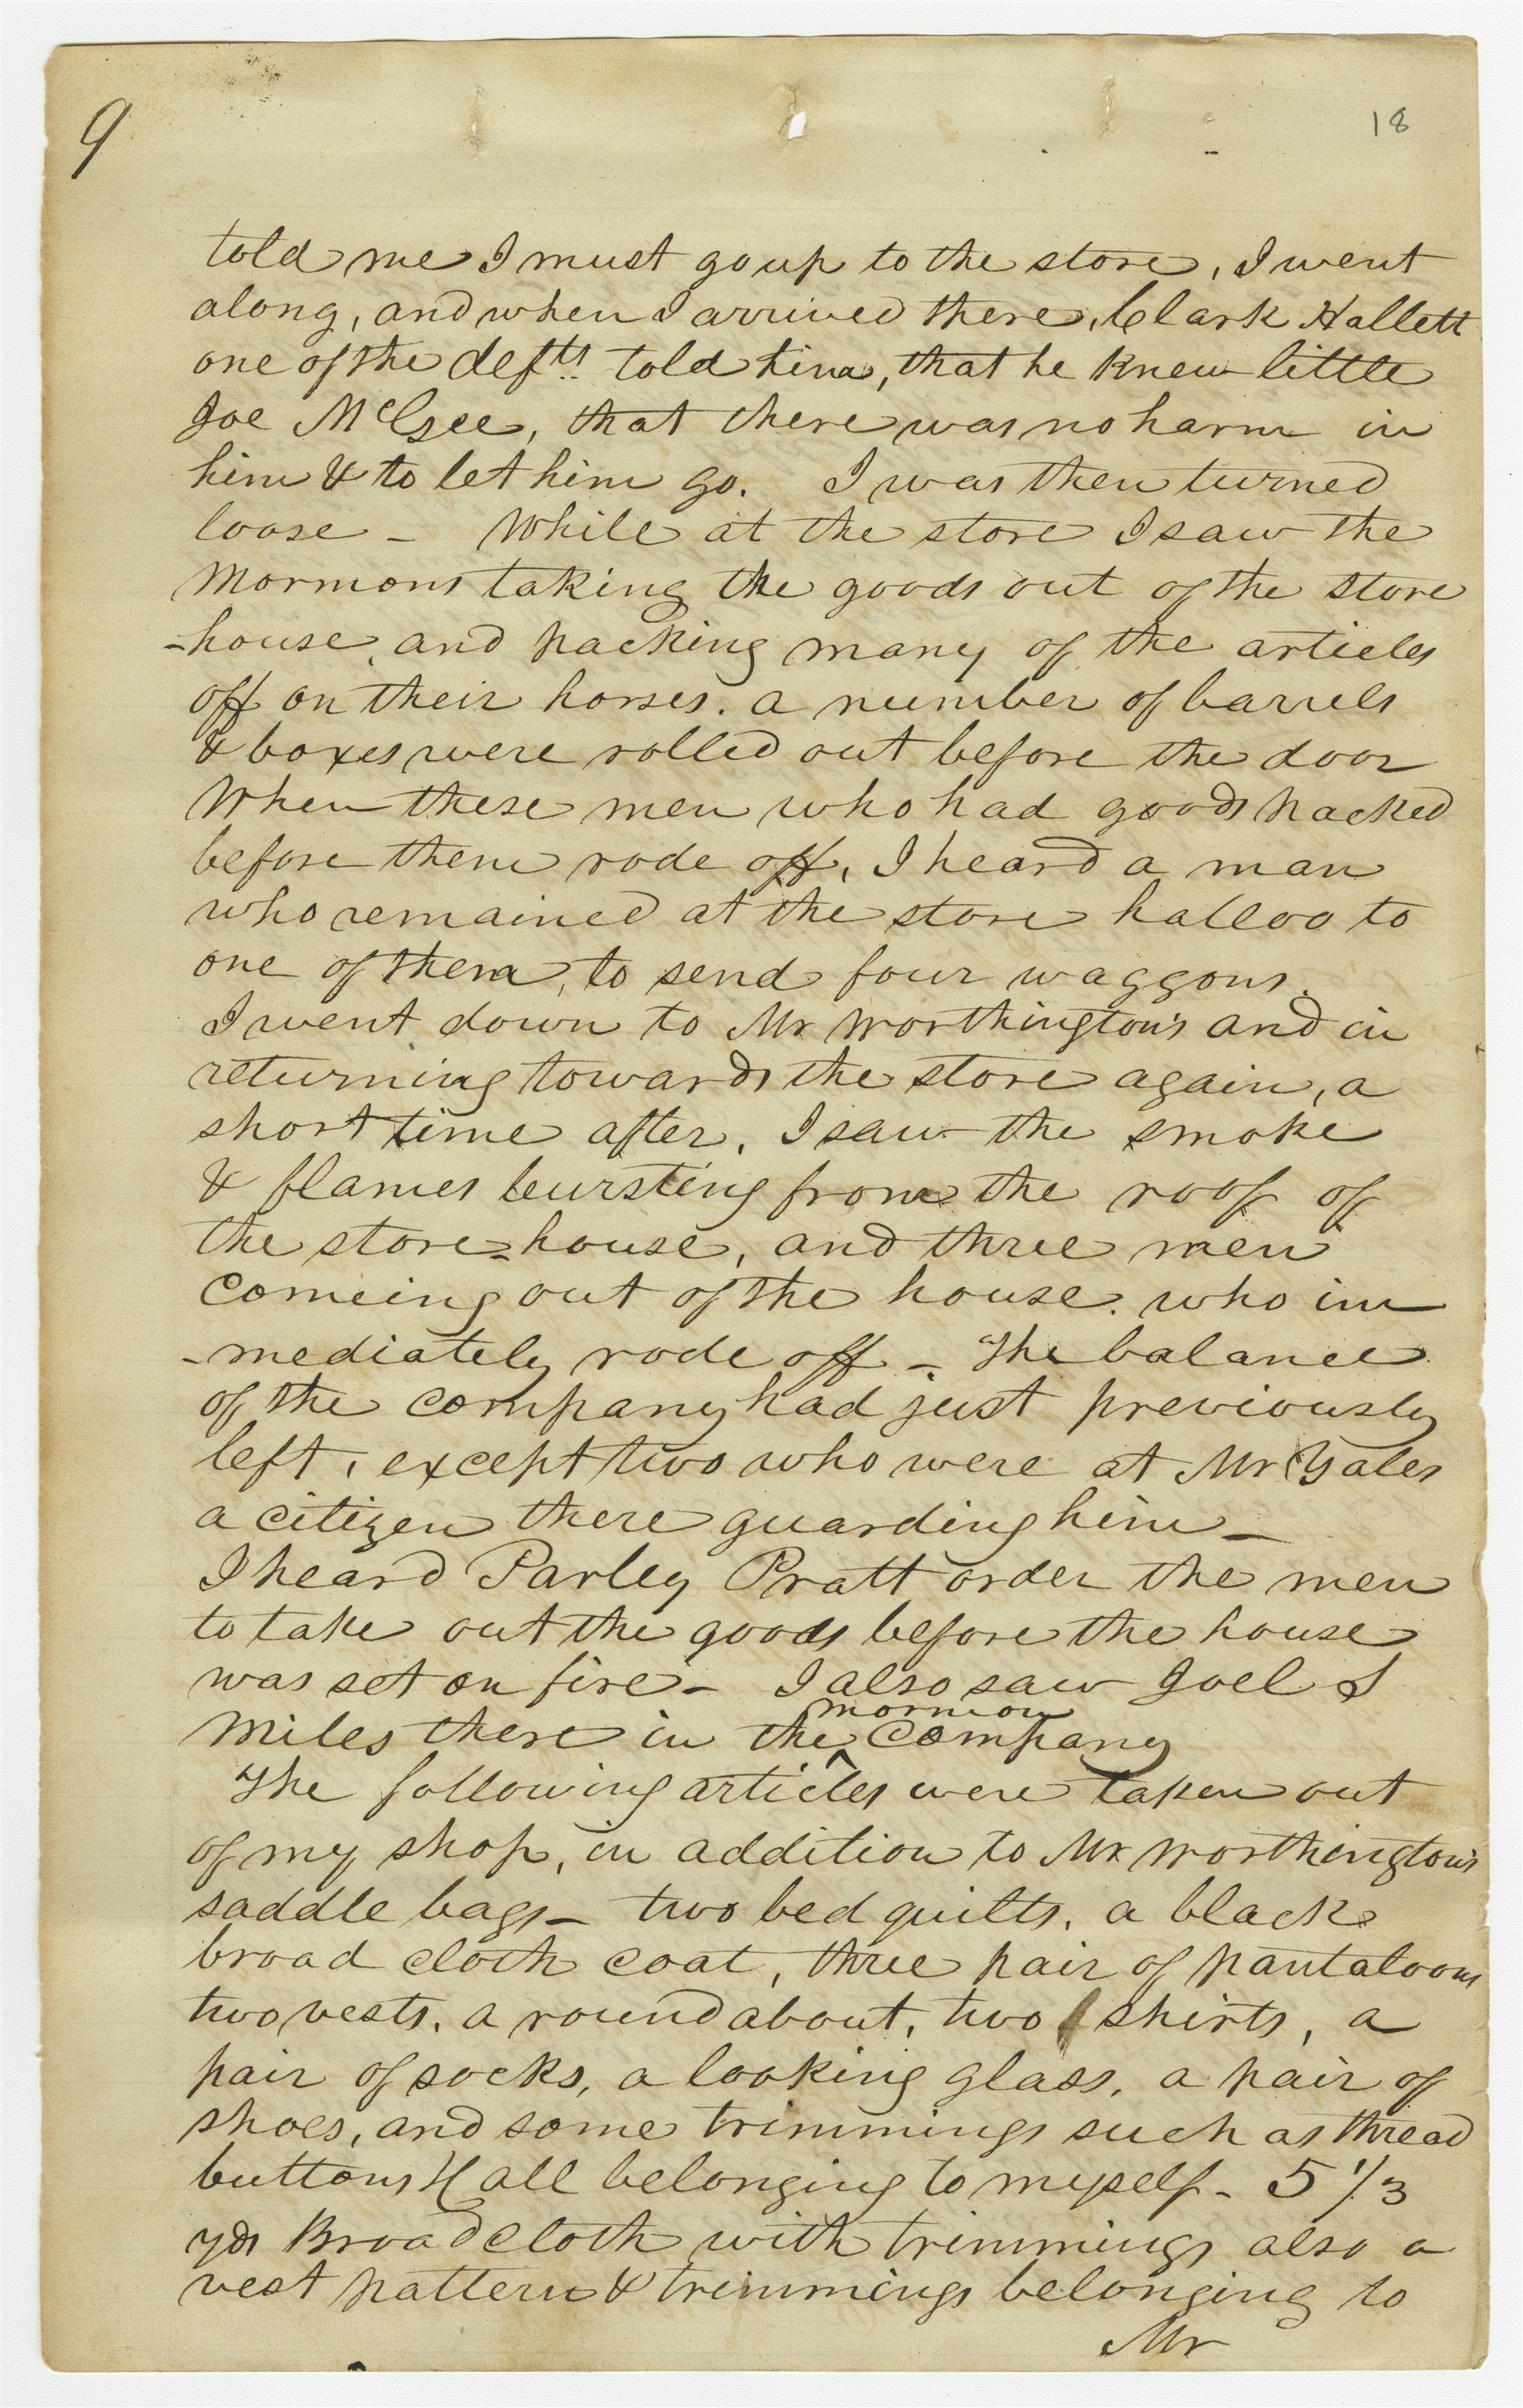 9
18
told me I must go up to the store, I went
along, and when I arrived there, Clark Hallett
one of the defts. told him, that he knew little
Joe McGee, that there was no harm in
him & to let him go. I was then turned
loose - While at the store I saw the
Mormons taking the goods out of the store
-house, and packing many of the articles
off on their horses. a number of barrels
& boxes were rolled out before the door
When these men who had goods packed
before them rode off, I heard a man
who remained at the store halloo to
one of them, to send four waggons.
I went down to Mr Worthington's and in
returning towards the store again, a
short time after, I saw the smoke
& flames bursting from the roof of
the store=house, and three men
comeing out of the house. who im
-mediately rode off - The balance
of the company had just previously
left, except two who were at Mr Yales
a citizen there guarding him -
I heard Parley Pratt order the men
to take out the goods before the house
was set on fire - I also saw Joel S
mormon
Miles there in the ^ company
The following articles were taken out
of my shop, in addition to Mr Worthington's
saddle bags - two bed quilts, a black
broad cloth coat, three pair of pantaloons
two vests, a roundabout, two shirts, a
pair of socks, a looking glass, a pair of
shoes, and some trimmings such as thread
buttons & all belonging to myself - 5 1/3
yds Broad cloth with trimmings also a
vest pattern & trimmings belonging to
Mr